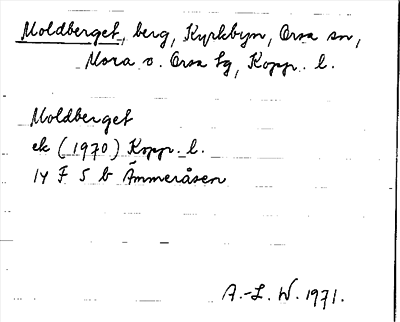 Moldberget, berg, Kyrkbyn, Orsa sn,
Mora o. Orsa tg, Kopp. l.
Moldberget
ek (1970) Kopp. l.
14 F 5 b Ämmeråsen
A.-L. W. 1971.